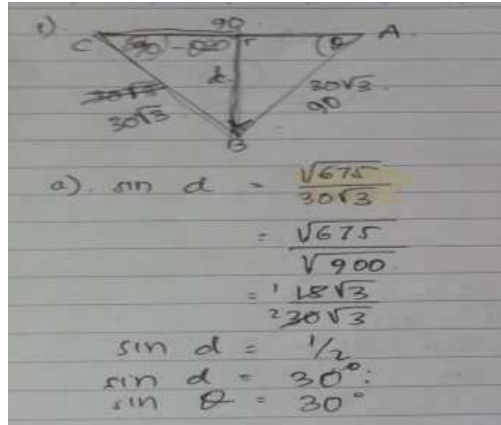 1).
90
C
A
90 - θ
θ
d
30√3
30√3
90
B
a). sin d = √675 / 30√3
= √675 / √900
= ¹ 15√3 / ² 30√3
sin d = 1/2
sin d = 30°
sin θ = 30°